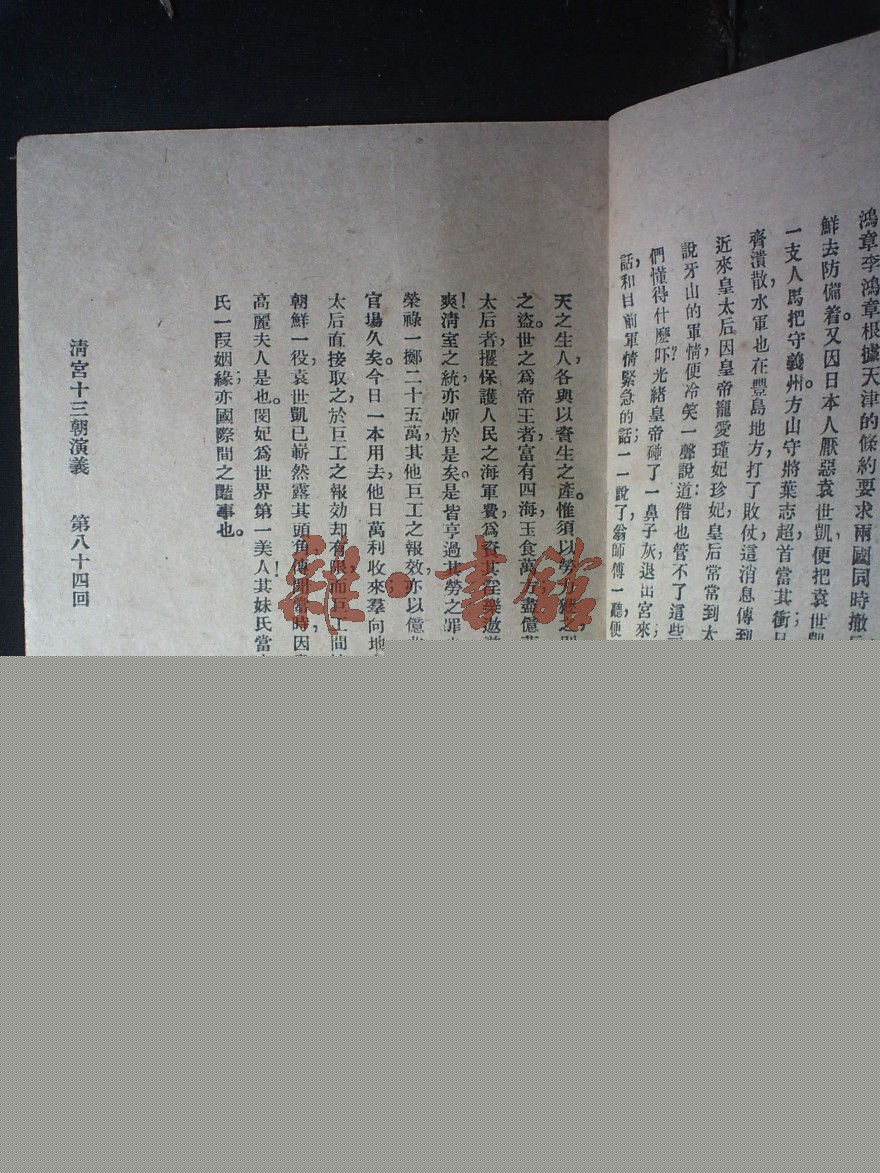 鴻章李鴻章根據天津的條約要求兩國同時撤
鮮去防備着。又因日本人厭惡袁世凱便把袁世凱
一支人馬把守義州方山守將葉志超首當其衝
齊潰散水軍也在豐島地方打了敗仗這消息傳到
近來皇太后因皇帝寵愛瑾妃珍妃皇后常常到太
說牙山的軍情便冷笑一聲說道偺也管不了這些
們懂得什麽吓?光緒皇帝碰了一鼻子灰退出宮來
話和目前軍情緊急的話一一說了翁師傅一聽便
天之生人,各與以資生之產。惟須以勞力
之盜。世之爲帝王者,富有四海,玉食萬方,盡億
太后者,攫保護人民之海軍費,爲資其淫樂遨遊
爽!清室之統,亦斬於是矣。是皆享過其勞之罪
榮祿一擲二十五萬,其他巨工之報效,亦以億
官場久矣。今日一本用去,他日萬利收來,羣向地
太后直接取之,於巨工之報効却有限,而巨工間
朝鮮一役,袁世凱已嶄然露其頭角,傳聞當時,因
高麗夫人是也。閔妃爲世界第一美人!其妹氏當
氏一段姻緣,亦國際間之豔事也。
清宮十三朝演義 第八十四回
雜·書館